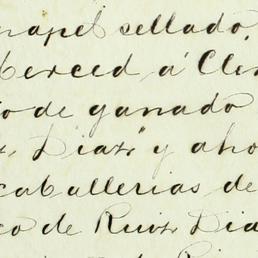 papel sellado,
Merced á Cle
o de ganado
z Diaz" y aho
caballerias de
co de Ruiz Dia